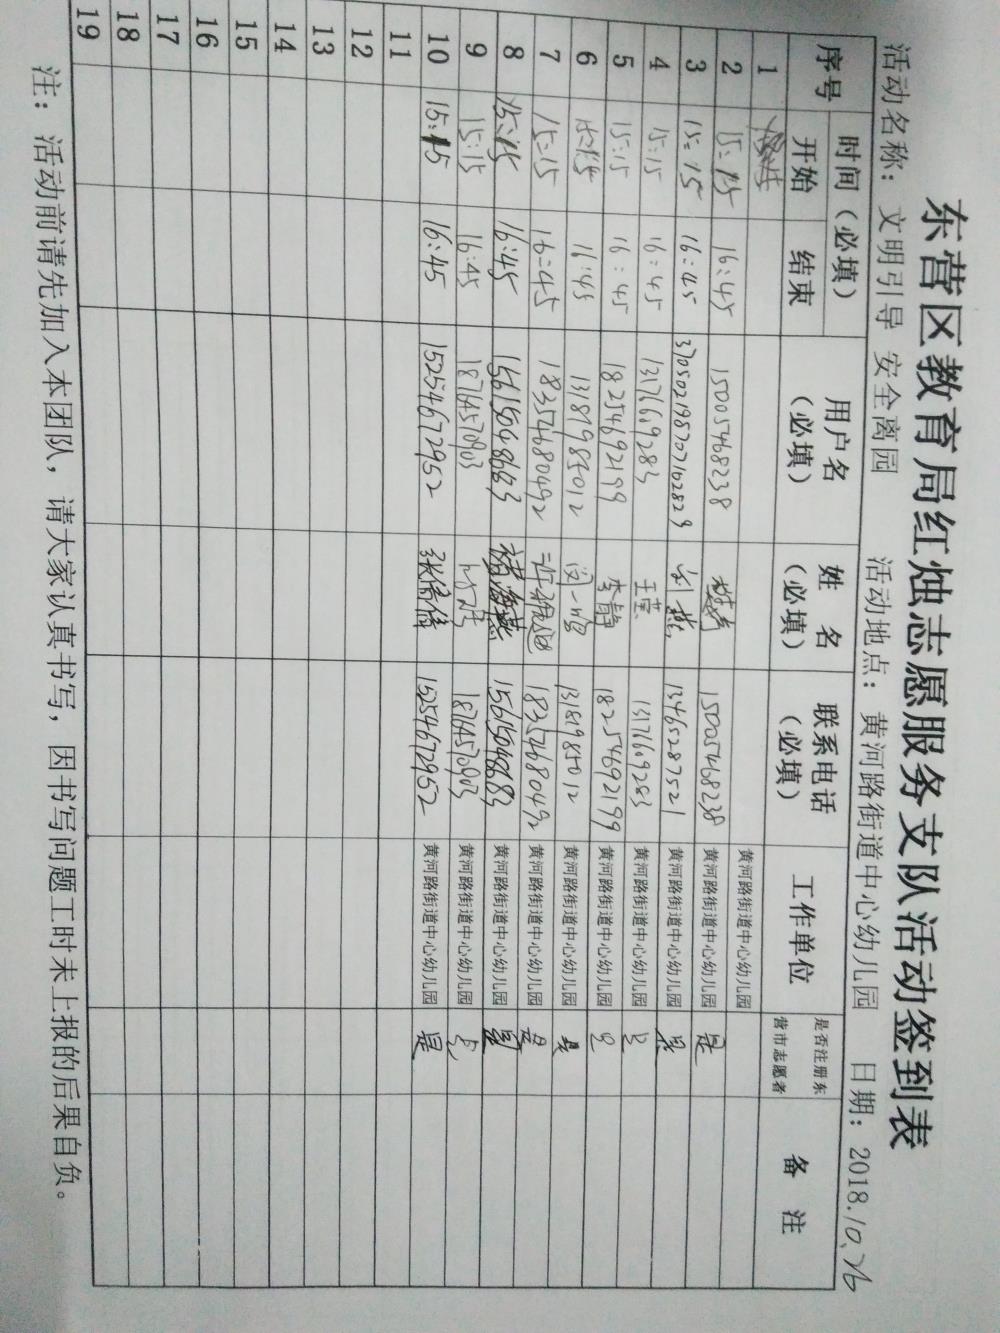 东营区教育局红烛志愿服务支队活动签到表
活动名称：文明引导 安全离园 活动地点：黄河路街道中心幼儿园 日期：2018.10.26
序号 时间（必填） 用户名（必填） 姓 名（必填） 联系电话（必填） 工作单位 是否注册东营市志愿者 备 注
开始 结束
1 黄河路街道中心幼儿园
2 15:15 16:45 15005468238 15005468238 黄河路街道中心幼儿园 是
3 15:15 16:45 370502198707162829 刘燕 13465287521 黄河路街道中心幼儿园 是
4 15:15 16:45 13176609283 王莹 13176609283 黄河路街道中心幼儿园 是
5 15:15 16:45 18254692199 李静 18254692199 黄河路街道中心幼儿园 是
6 15:15 16:45 13181985012 闵一鸣 13181985012 黄河路街道中心幼儿园 是
7 15:15 16:45 18354680492 18354680492 黄河路街道中心幼儿园 是
8 15:15 16:45 15615048683 燕 15615048683 黄河路街道中心幼儿园 是
9 15:15 16:45 18764570903 18764570903 黄河路街道中心幼儿园 是
10 15:15 16:45 15254672952 张倩倩 15254672952 黄河路街道中心幼儿园 是
11
12
13
14
15
16
17
18
19
注：活动前请先加入本团队，请大家认真书写，因书写问题工时未上报的后果自负。